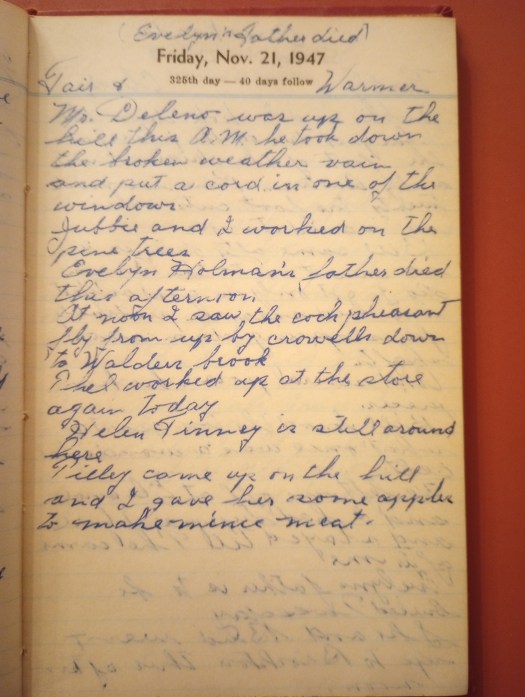 (Evelyn's father died)
Friday, Nov. 21, 1947
325th day — 40 days follow
Fair & Warmer
Mr. Deleno was up on the
hill this A.M. he took down
the broken weather vain
and put a cord in one of the
windows
Jubbie and I worked on the
pine trees
Evelyn Holman's father died
this afternoon
At noon I saw the cock pheasant
fly from up by crowells down
to Walden brook
Phel worked up at the store
again today
Helen Tinney is still around
here
Tilley came up on the hill
and I gave her some apples
to make mince meat.